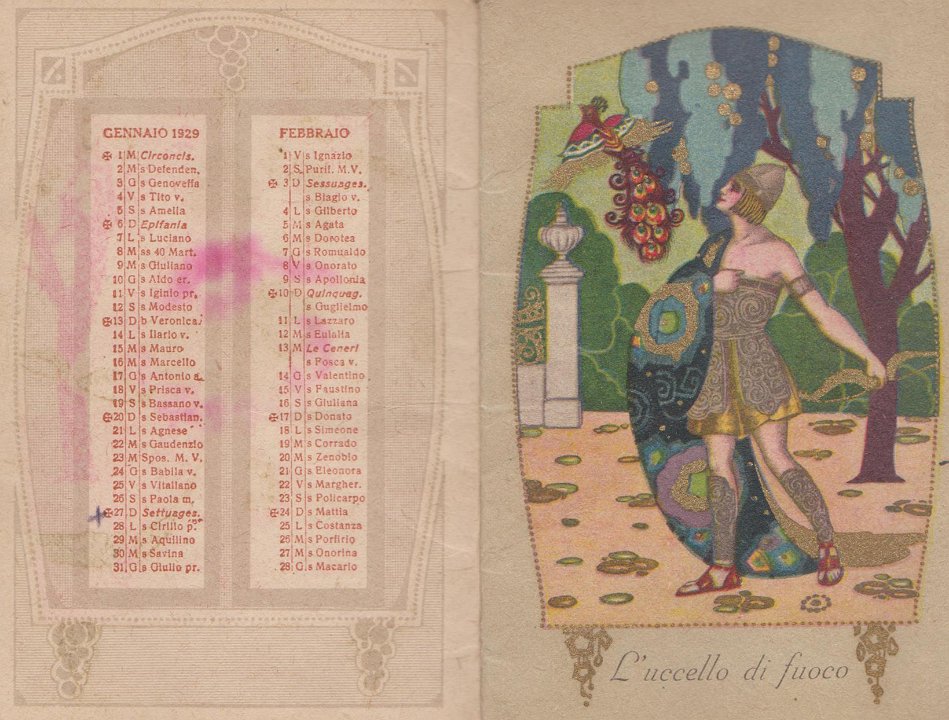 GENNAIO 1929
✠ 1 M Circoncis.
2 M s Defenden.
3 G s Genoveffa
4 V s Tito v.
5 S s Amelia
✠ 6 D Epifania
7 L s Luciano
8 M ss 40 Mart.
9 M s Giuliano
10 G s Aldo er.
11 V s Iginio pr.
12 S s Modesto
✠ 13 D b Veronica
14 L s Ilario v.
15 M s Mauro
16 M s Marcello
17 G s Antonio a.
18 V s Prisca v.
19 S s Bassano v.
✠ 20 D s Sebastian.
21 L s Agnese
22 M s Gaudenzio
23 M Spos. M. V.
24 G s Babila v.
25 V s Vitaliano
26 S s Paola m.
✠ 27 D Settuages.
28 L s Cirillo p.
29 M s Aquilino
30 M s Savina
31 G s Giulio pr.
FEBBRAIO
1 V s Ignazio
2 S Purif. M.V.
✠ 3 D Sessuages.
s Biagio v.
4 L s Gilberto
5 M s Agata
6 M s Dorotea
7 G s Romualdo
8 V s Onorato
9 S s Apollonia
✠ 10 D Quinquag.
s Guglielmo
11 L s Lazzaro
12 M s Eulalia
13 M Le Ceneri
s Fosca v.
14 G s Valentino
15 V s Faustino
16 S s Giuliana
✠ 17 D s Donato
18 L s Simeone
19 M s Corrado
20 M s Zenobio
21 G s Eleonora
22 V s Margher.
23 S s Policarpo
✠ 24 D s Mattia
25 L s Costanza
26 M s Porfirio
27 M s Onorina
28 G s Macario
L'uccello di fuoco